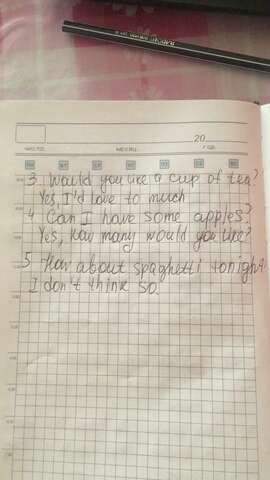 20
3. Would you like a cup of tea?
Yes, I'd love to much
4 Can I have some apples?
Yes, How many would you like?
5 How about spaghetti tonight
I don't think so.